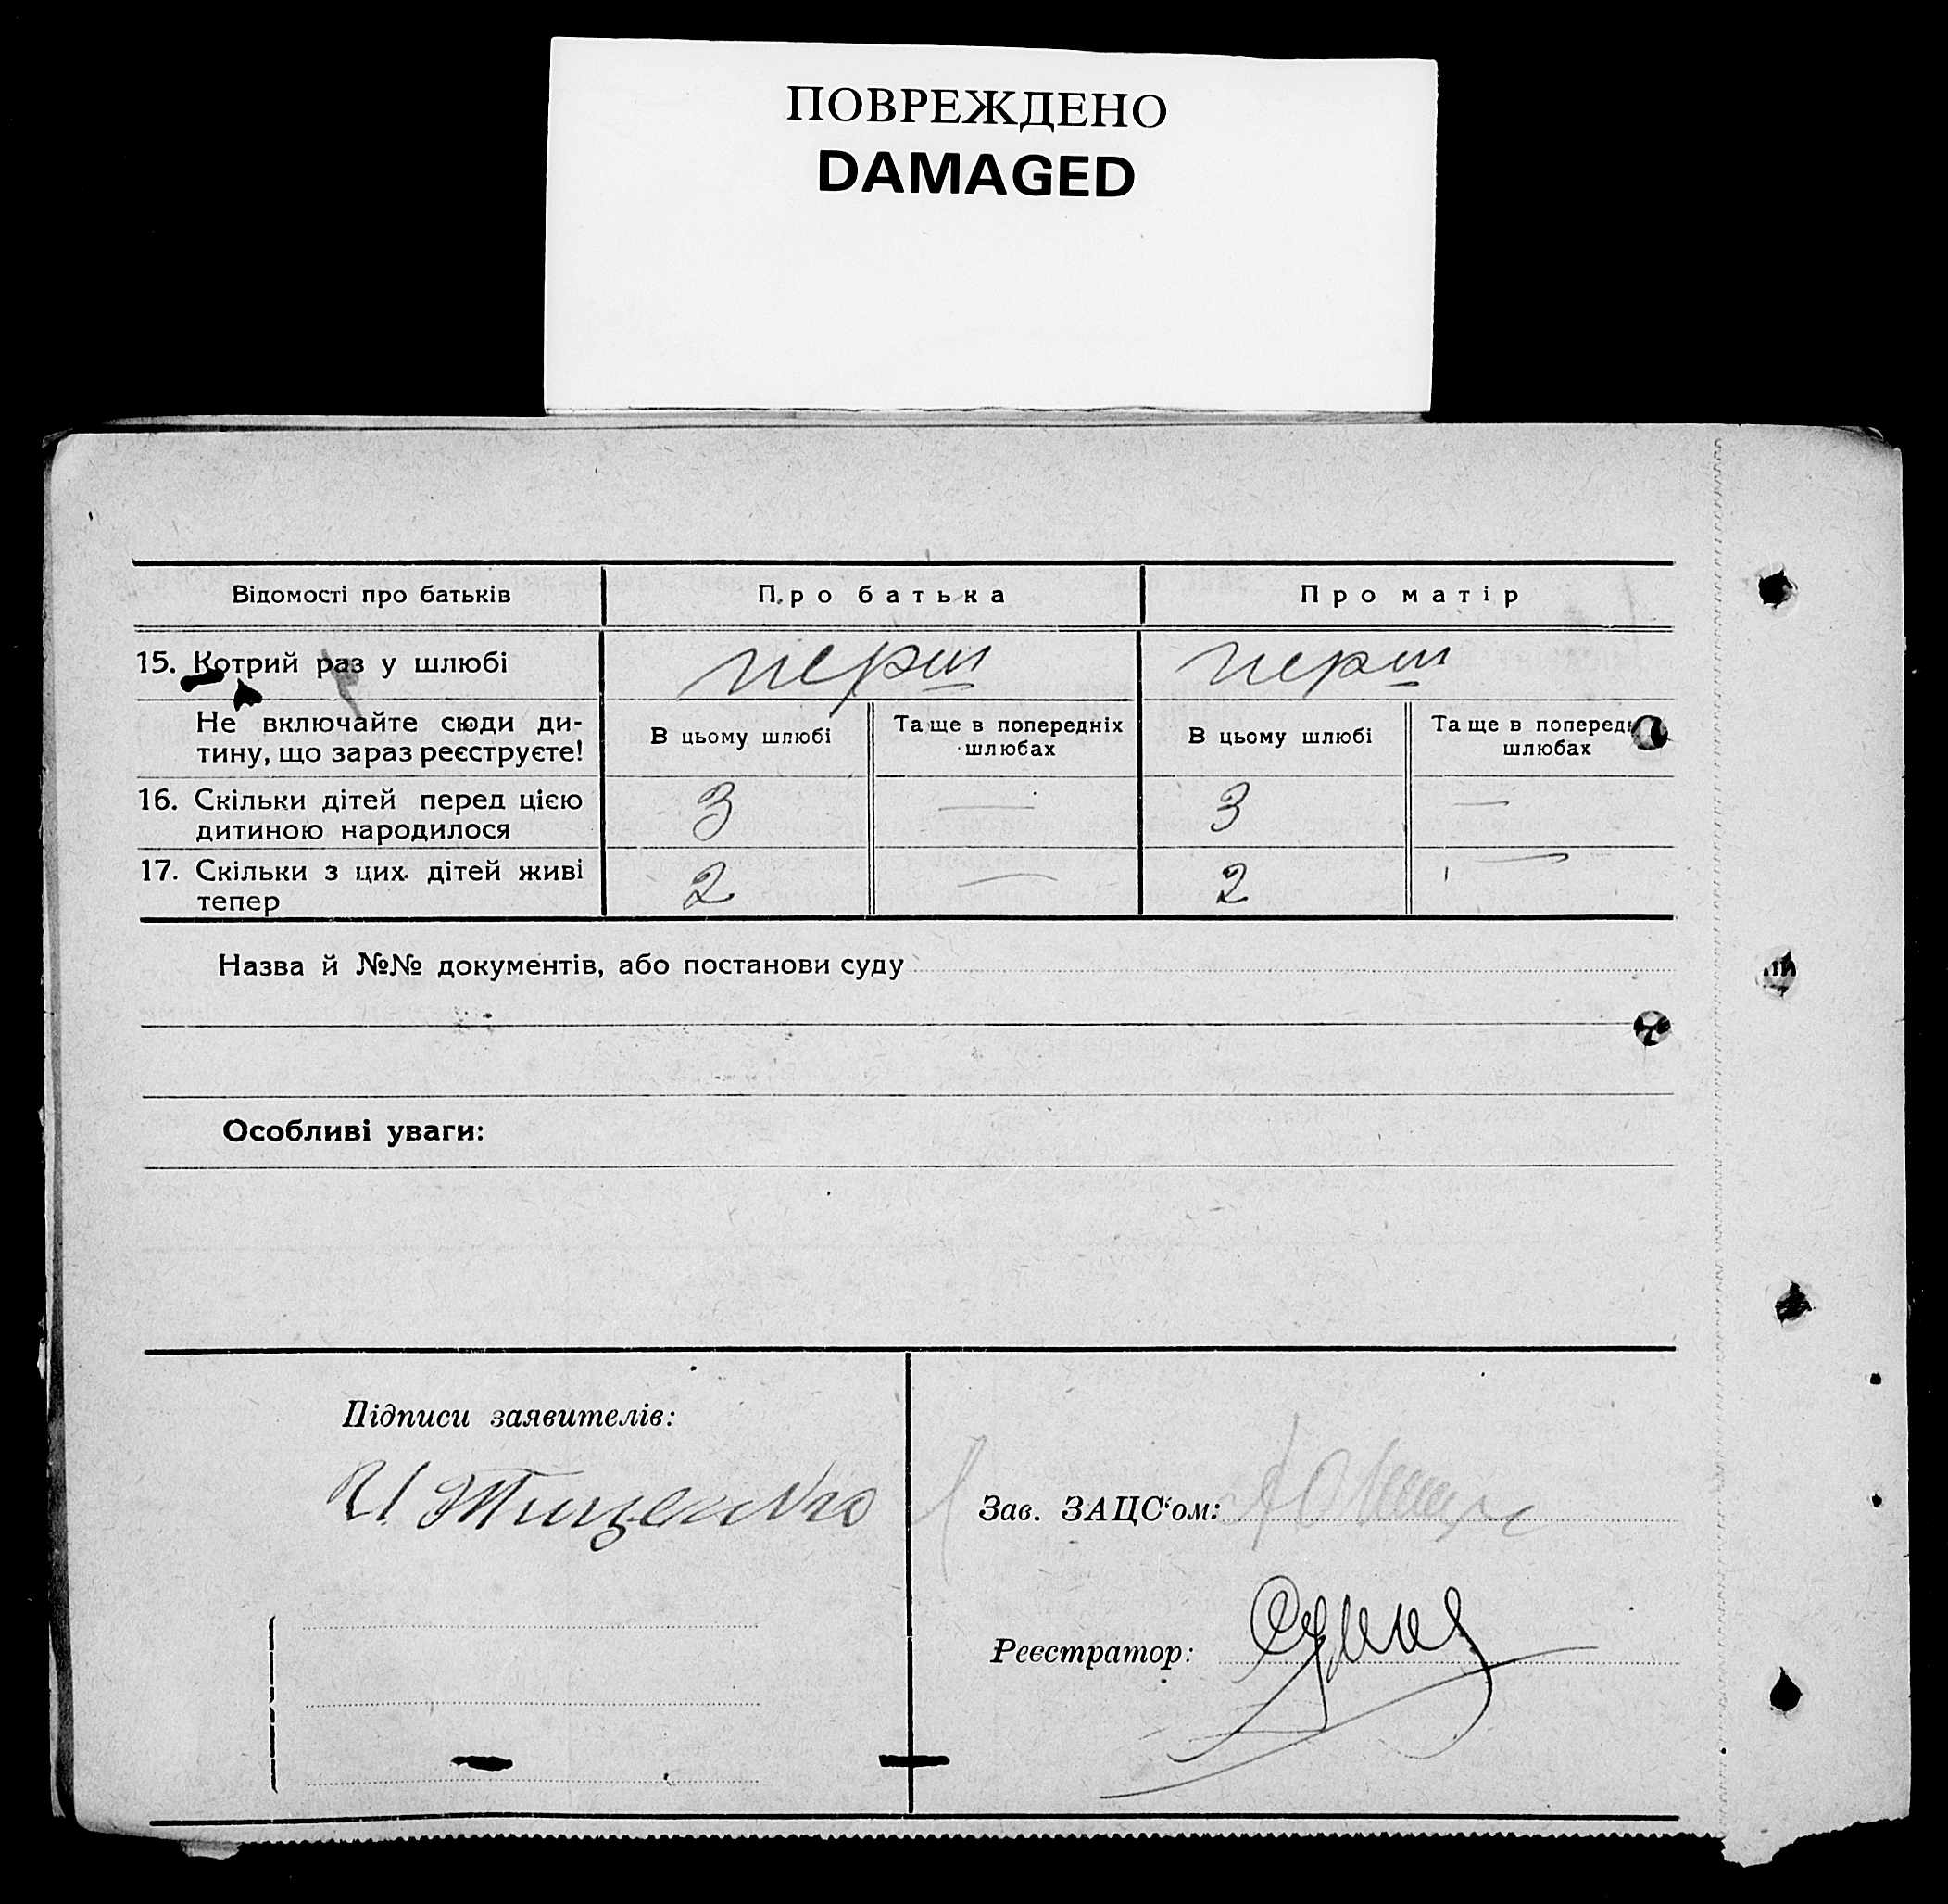 ПОВРЕЖДЕНО
DAMAGED
Відомості про батьків Про батька Про матір
15. Котрий раз у шлюбі перш перш
Не включайте сюди ди-
тину, що зараз реєструєте!
В цьому шлюбі Та ще в попередніх
шлюбах
В цьому шлюбі Та ще в
шлюбах
16. Скільки дітей перед цією
дитиною народилося 3 — 3 —
17. Скільки з цих дітей живі
тепер 2 — 2 —
Назва й №№ документів, або постанови суду
Особливі уваги:
Підписи заявителів:
И Тищенко
Зав. ЗАЦС‘ом:
Реєстратор: